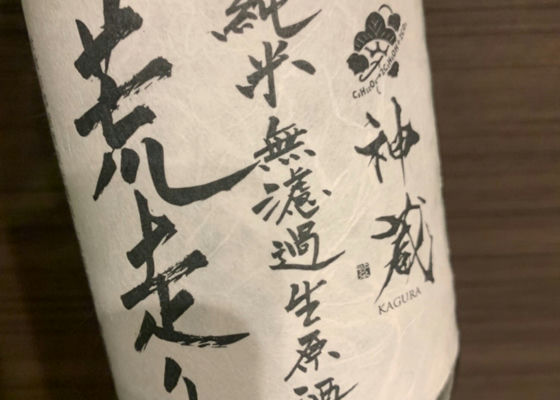 神蔵
KAGURA
純米無濾過生原酒
荒走り